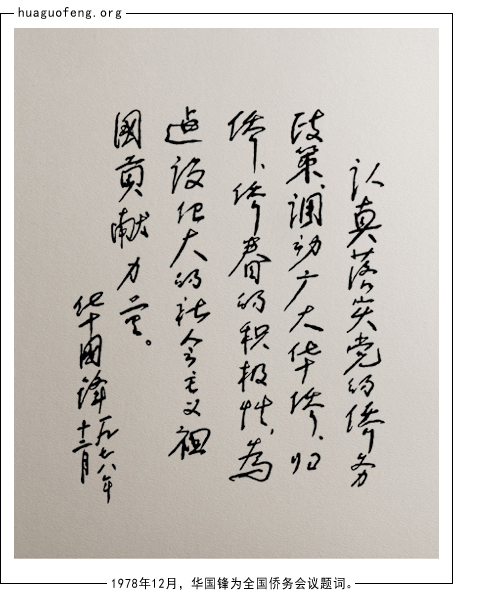 huaguofeng.org
认真落实党的侨务
政策,调动广大华侨、归
侨、侨眷的积极性,为
建设伟大的社会主义祖
國貢献力量。
华國锋
一九七八年
十二月
1978年12月，华国锋为全国侨务会议题词。